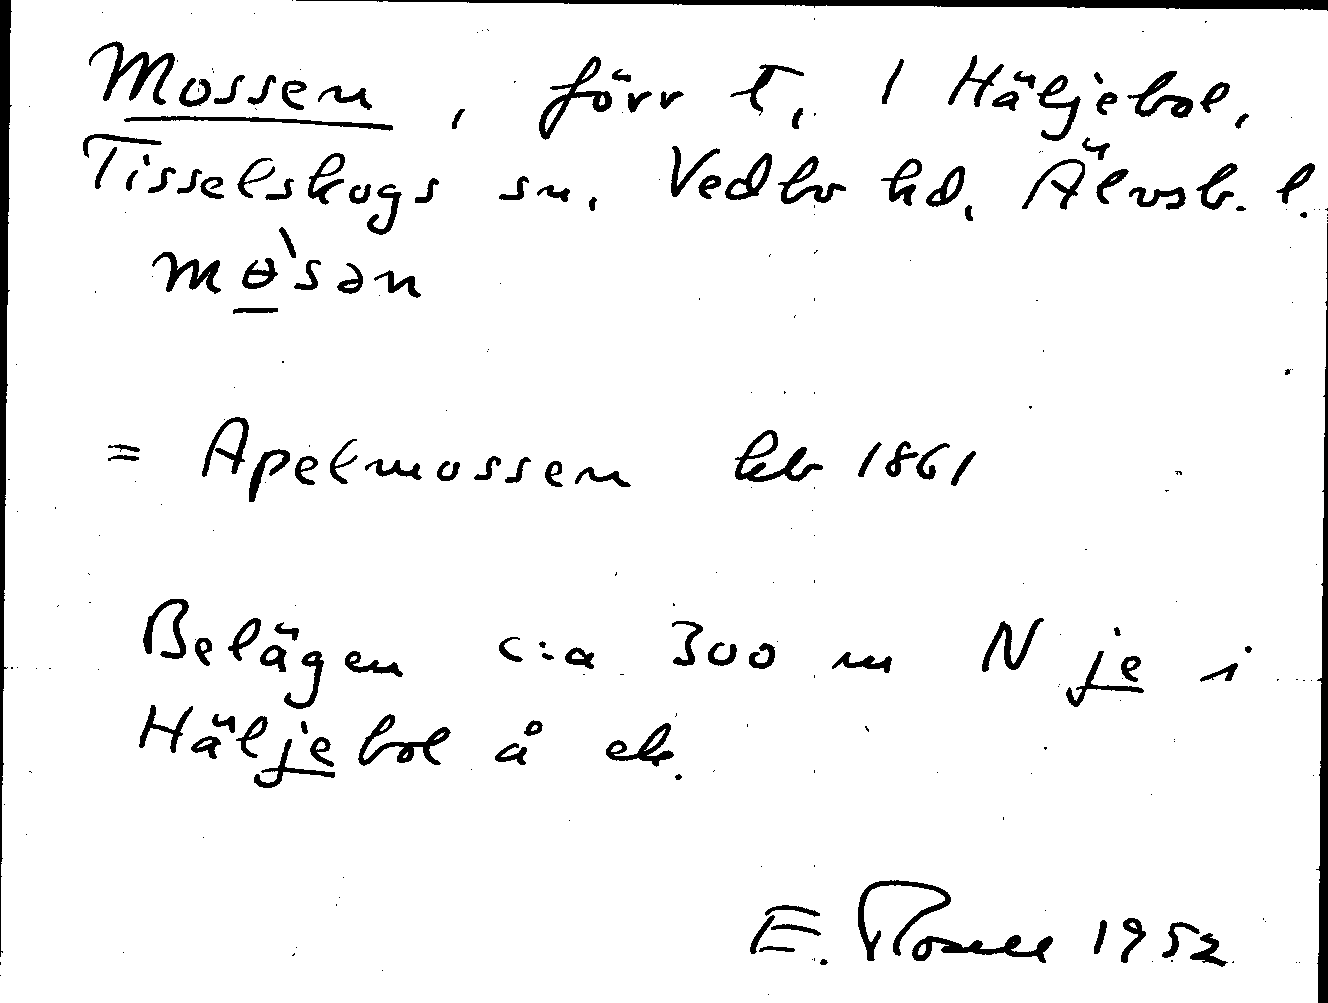 Mossen, förr t, 1 Häljebol,
Tisselskogs sn, Vedbo hd, Älvsb. l.
mɵ̀sən
= Apelmossen kb 1861
Belägen c:a 300 m N je i
Häljebol å ek.
E. 1952